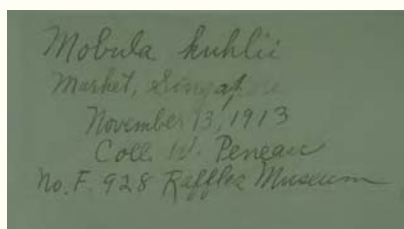 Mobula kuhlii
Market, Singapore
November 13, 1913
Coll. W. Peneau
No. F. 928 Raffles Museum